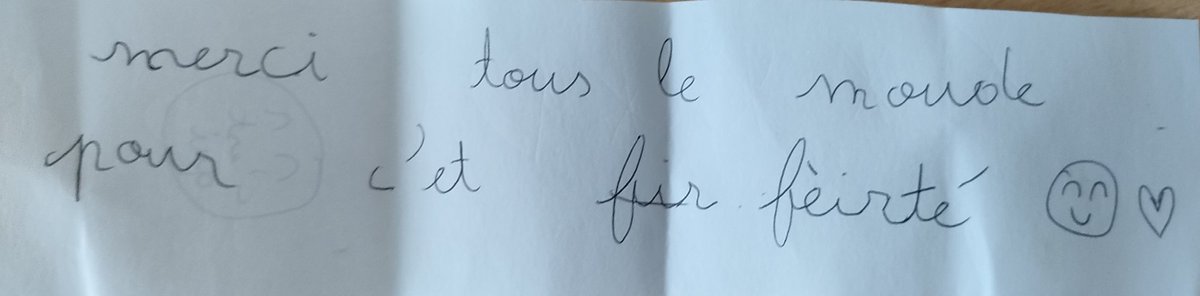 merci tous le monde
pour c'et fir fèirté